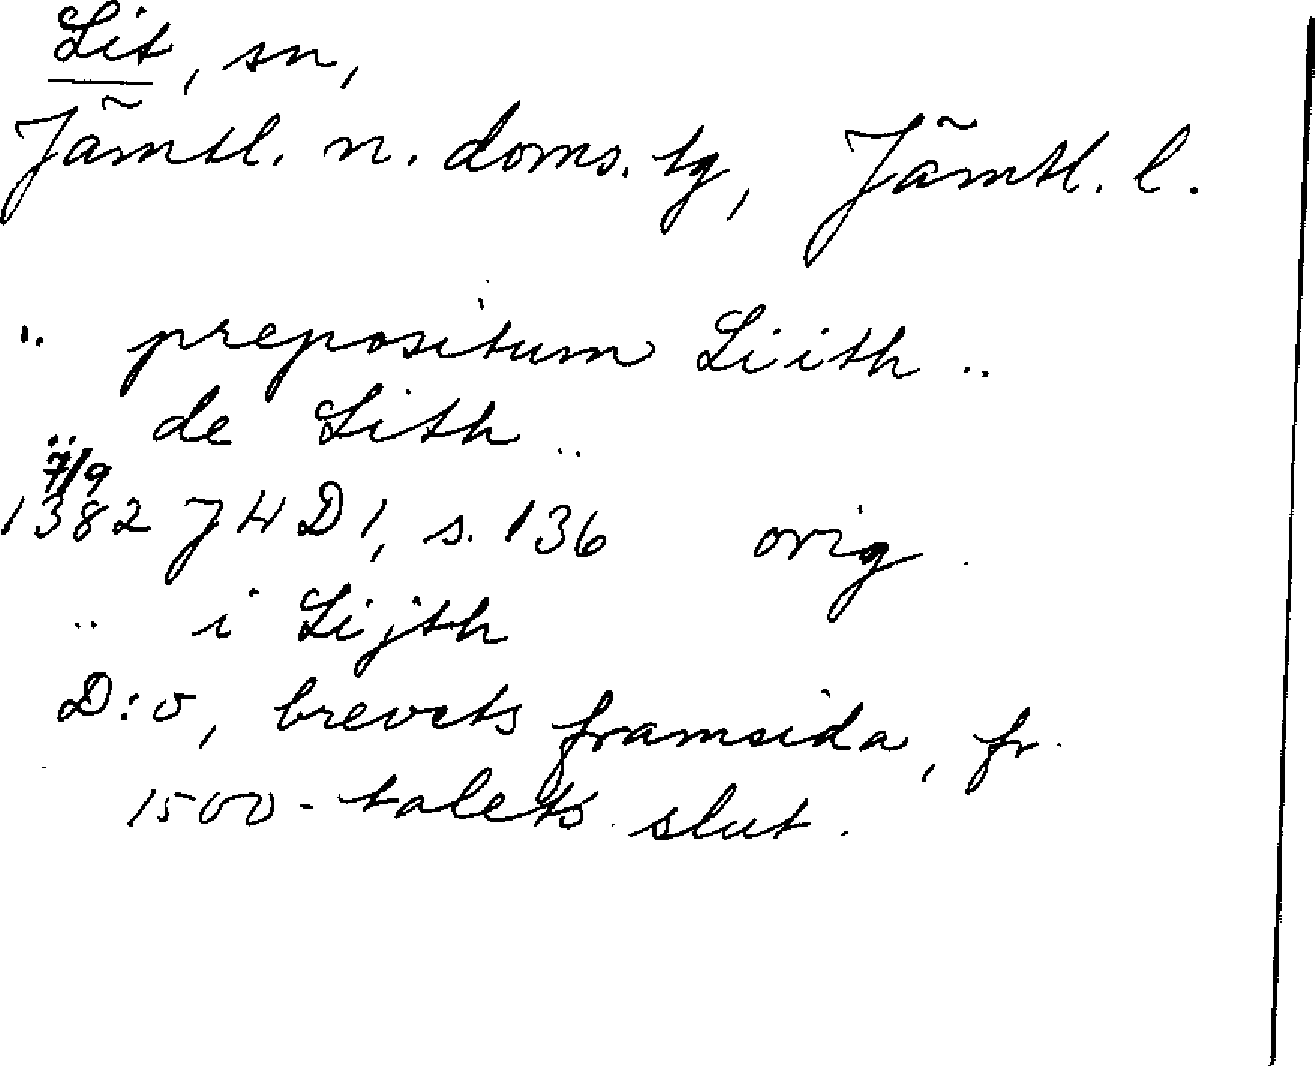 Lit, sn,
Jämtl. n. doms. tg, Jämtl. l.
.. prepositum Liith ..
.. de Lith ..
7/9
1382 JHD 1, s. 136 orig.
.. i Lijth
D:o, brevets framsida, fr.
1500-talets slut.